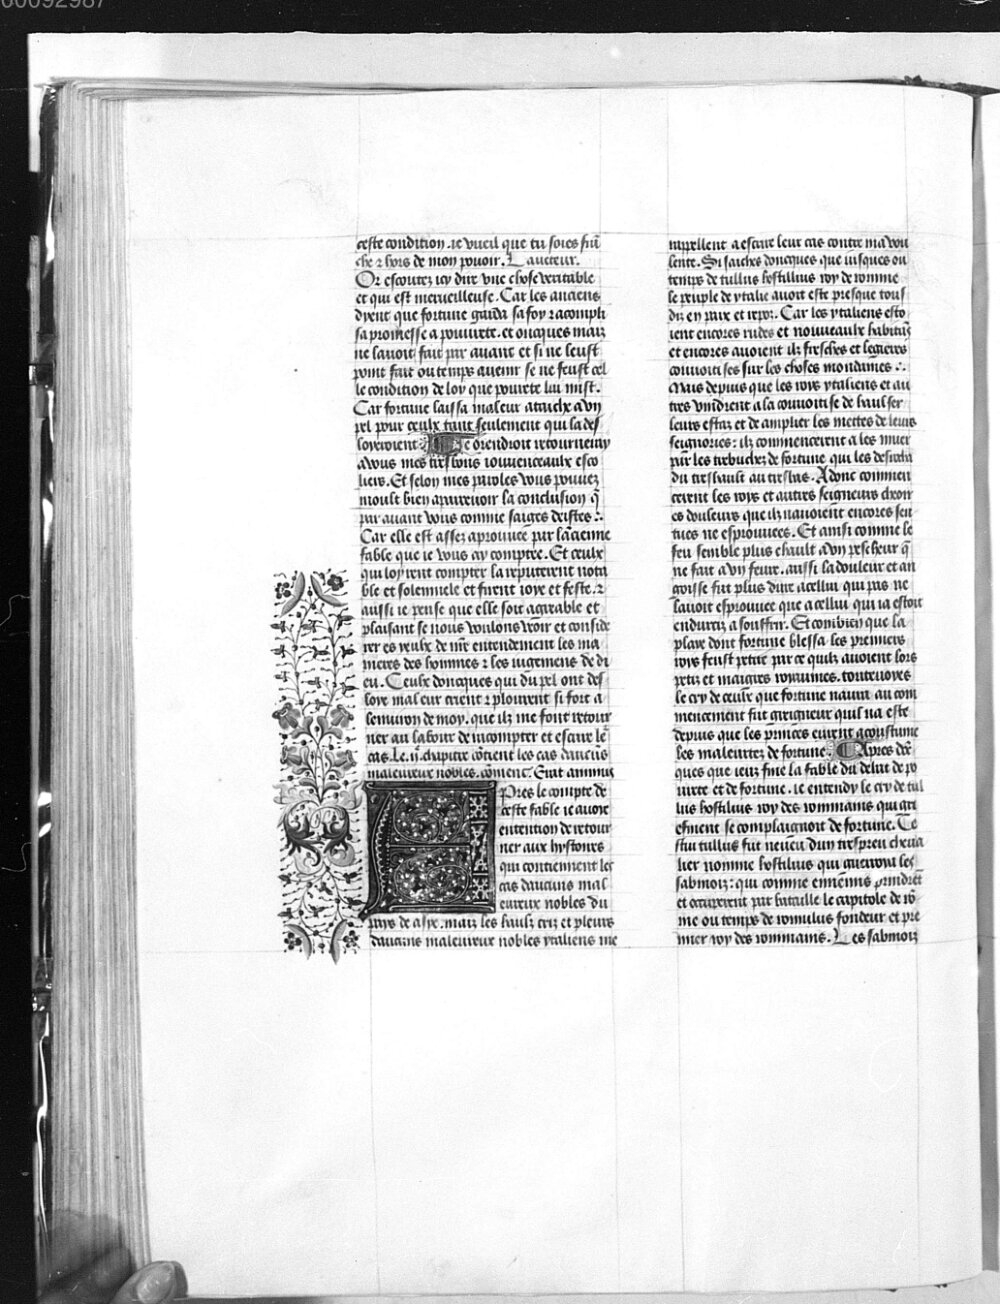 60092987
ceste condition. ie vueil que tu soies frã
che ⁊ hors de mon pouoir. Laucteur.
Or escoutez icy dire vne chose veritable
et qui est merueilleuse. Car les anciens
dyent que fortune garda sa foy ⁊ acompli
sa promesse a pouurete. et oncques mais
ne lauoit fait par auant et si ne leust
point fait ou temps auenir se ne feust cel
le condition de loy que pourete lui mist.
Car fortune laissa maleur atache a vn
pel pour ceulx tant seulement qui la des
loyeroient. Ie orendroit retourneray
a vous mes tresbons iouuenceaulx esco
liers. Et selon mes paroles vous pouuez
moult bien aparceuoir la conclusion q̃
par auant vous comme saiges deistes :.
Car elle est assez aprouuee par lãcienne
fable que ie vous ay comptee. Et ceulx
qui loyrent compter la reputerent nota
ble et solennele et firent ioye et feste. ⁊
aussi ie pense que elle soit agreable et
plaisant se nous voulons veoir et conside
rer es yeulx de nr̃e entendement les ma
nieres des hommes ⁊ les iugemens de di
eu. Ceulx doncques qui du pel ont des
loye maleur crient ⁊ plourent si fort a
lenuiron de moy. que ilz me font retour
ner au labour de racompter et escrire le
cas. Le .ii. chapitre cõtient les cas daucũs
maleureux nobles. cõmenc̃. Erat animus
Apres le compte de
ceste fable ie auoie
entention de retour
ner aux hystoires
qui contiennent les
cas daucuns mal
eureux nobles du
pays de asye. mais les haulx criz et pleurs
daucuns maleureux nobles ytaliens me
rappellent a escrire leur cas contre ma vou
lente. Si saiches doncques que iusques ou
temps de tullus hostillius roy de romme
le peuple de ytalie auoit este presque tous
diz en paix et repoz. Car les ytaliens esto
ient encores rudes et nouueaulx habitãs
et encores auoient ilz fresches et legieres
conuoitises sur les choses mondaines :.
Mais depuis que les roys ytaliens et au
tres vindrent a la conuoitise de haulser
leurs estaz et de amplier les mettes de leurs
seigneuries : ilz commencerent a les muer
par les trebuchez de fortune qui les
du treshault au tresbas. Adonc commen
cerent les roys et autres seigneurs cheoir
es douleurs que ilz nauoient encores sen
tues ne esprouuees. Et ainsi comme le
feu semble plus chault a vn pescheur q̃
ne fait a vn feure. aussi la douleur et an
goisse fut plus dure a cellui qui pas ne
lauoit esprouuee que a cellui qui ia estoit
endurcy a souffrir. Et combien que la
playe dont fortune blessa les premiers
roys feust petite par ce quilz auoient lors
petiz et maigres royaumes. toutesuoyes
le cry de ceulx que fortune naura au com
mencement fut greigneur quil na este
depuis que les princes eurent acoustume
les maleurtez de fortune. Apres dõc
ques que ieuz fine la fable du debat de po
urete et de fortune. ie entendy le cry de tul
lus hostilius roy des rommains qui gri
efment se complaignoit de fortune. Ce
stui tullus fut neueu dun trespreu cheua
lier nomme hostilius qui guerroya les
sabinoiz : qui comme ennemis prindrẽt
et occuperent par bataille le capitole de rõ
me ou temps de romulus fondeur et pre
mier roy des rommains. Les sabinoiz